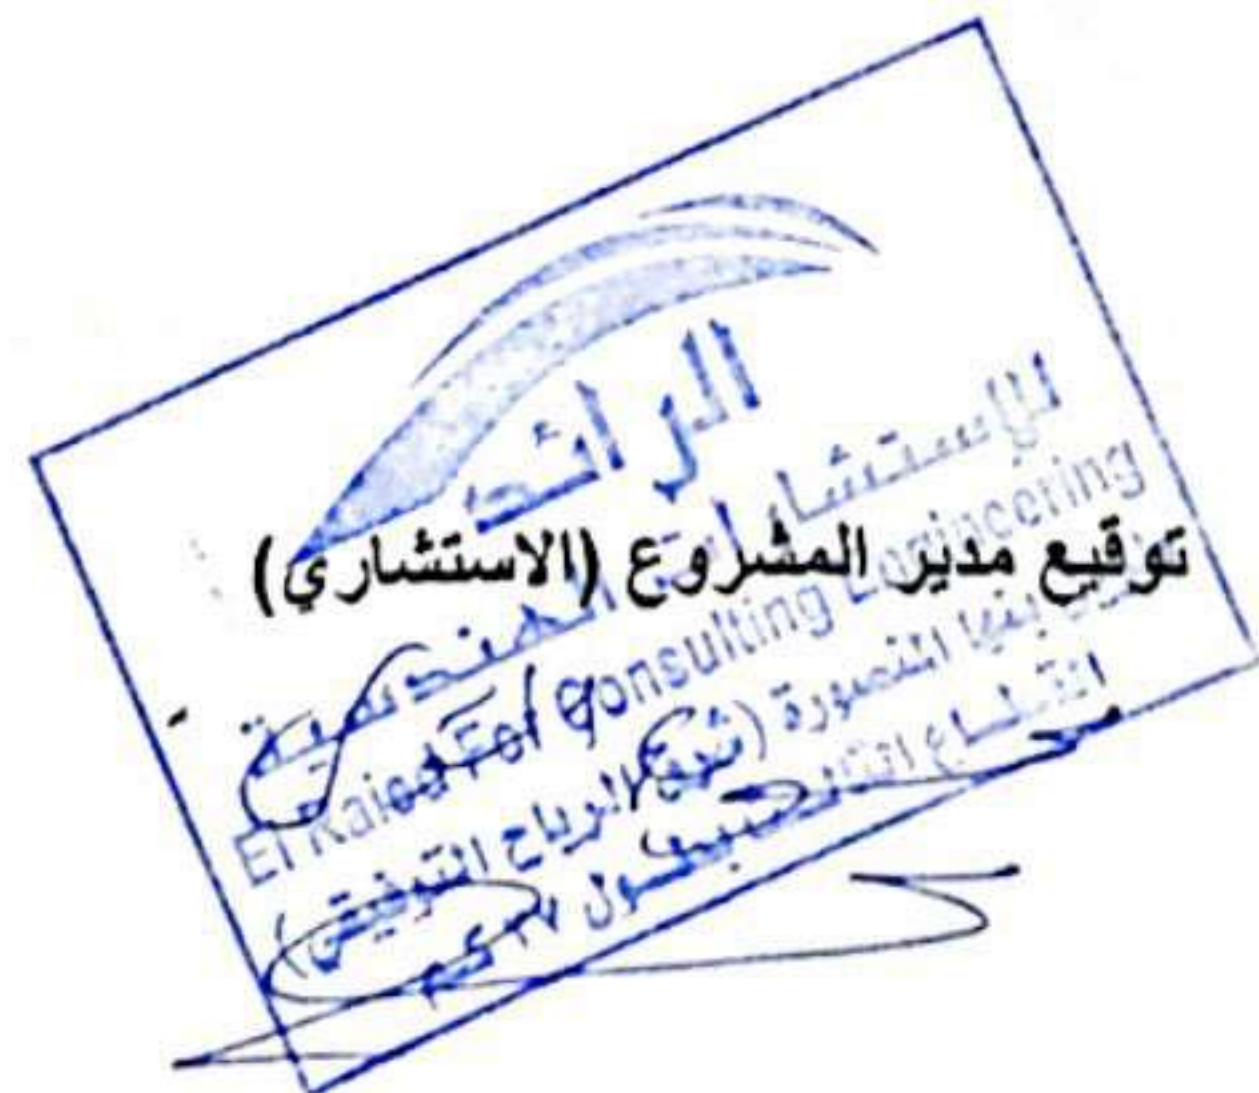 الرائد
للإستشارات الهندسية
توقيع مدير المشروع (الاستشاري)
El Raied For Consulting Engineering
بنها المنصورة (شرق الرياح التوفيقي)
القطاع بطول ٢٧ كم